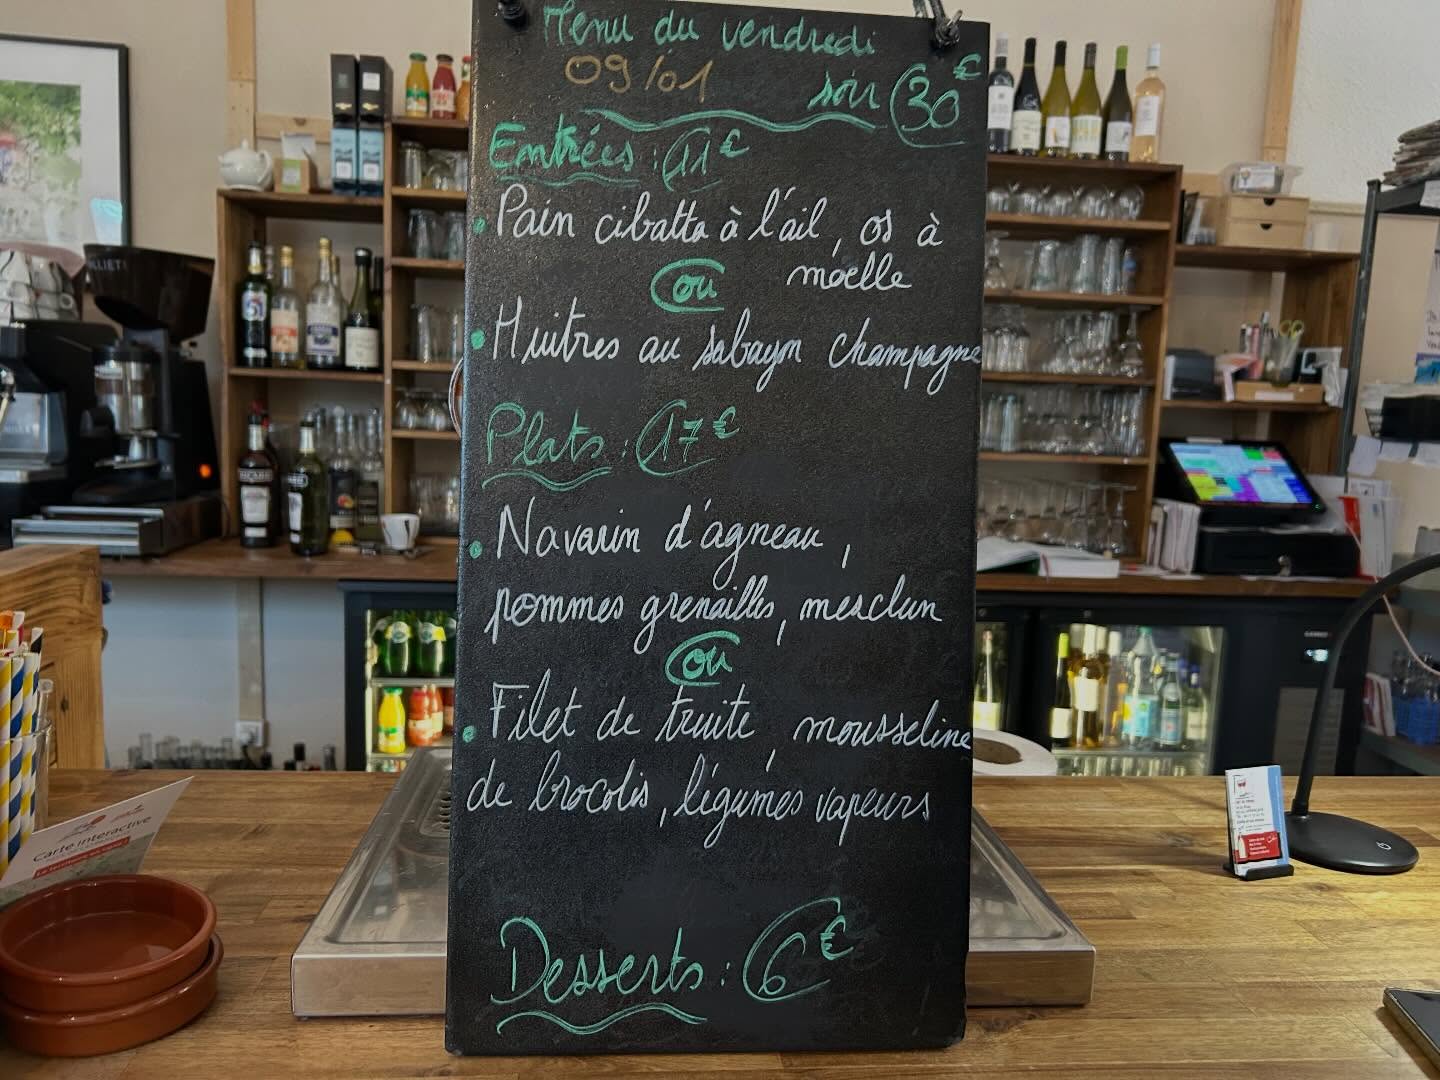 Menu du vendredi
09/01 soir 30€
Entrées : 11€
• Pain cibatta à l'ail, os à
moelle
ou
• Huitres au sabayon champagne
Plats : 17€
• Navarin d'agneau,
pommes grenailles, mesclun
ou
• Filet de truite, mousseline
de brocolis, légumes vapeurs
Desserts : 6€
Carte interactive